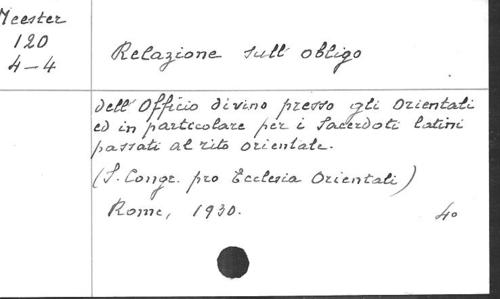 Meester
120
4-4
Relazione sull' obligo
dell' Officio divino presso gli Orientali
ed in particolare per i Sacerdoti latini
passati al rito orientale.
(S. Congr. pro Ecclesia Orientali)
Rome, 1930.
4o